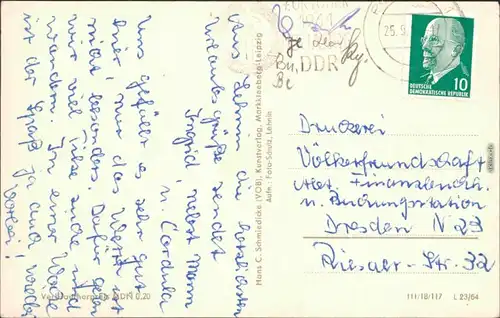 Aus Lehnin die herzlichsten
Urlaubsgrüße sendet
Ingrid nebst Mann
u. Cordula
Uns gefällt es sehr gut
hier, nur das Wetter ist
nicht besonders. Dafür gehen
wir viel Pilze suche und
wandern. In einer Woche
ist der Spaß ja auch wieder
vorbei!
Verbraucherpreis MDN 0,20
Hans C. Schmiedicke (VOB), Kunstverlag, Markkleeberg-Leipzig
Aufn.: Foto-Schulz, Lehnin
25.9.
DDR
10
DEUTSCHE
DEMOKRATISCHE REPUBLIK
Druckerei
Völkerfreundschaft
Abt. Finanzbuchh.
u. Buchungsstation
Dresden N 23
Riesaer-Str. 32
111/18/117 L 23/64